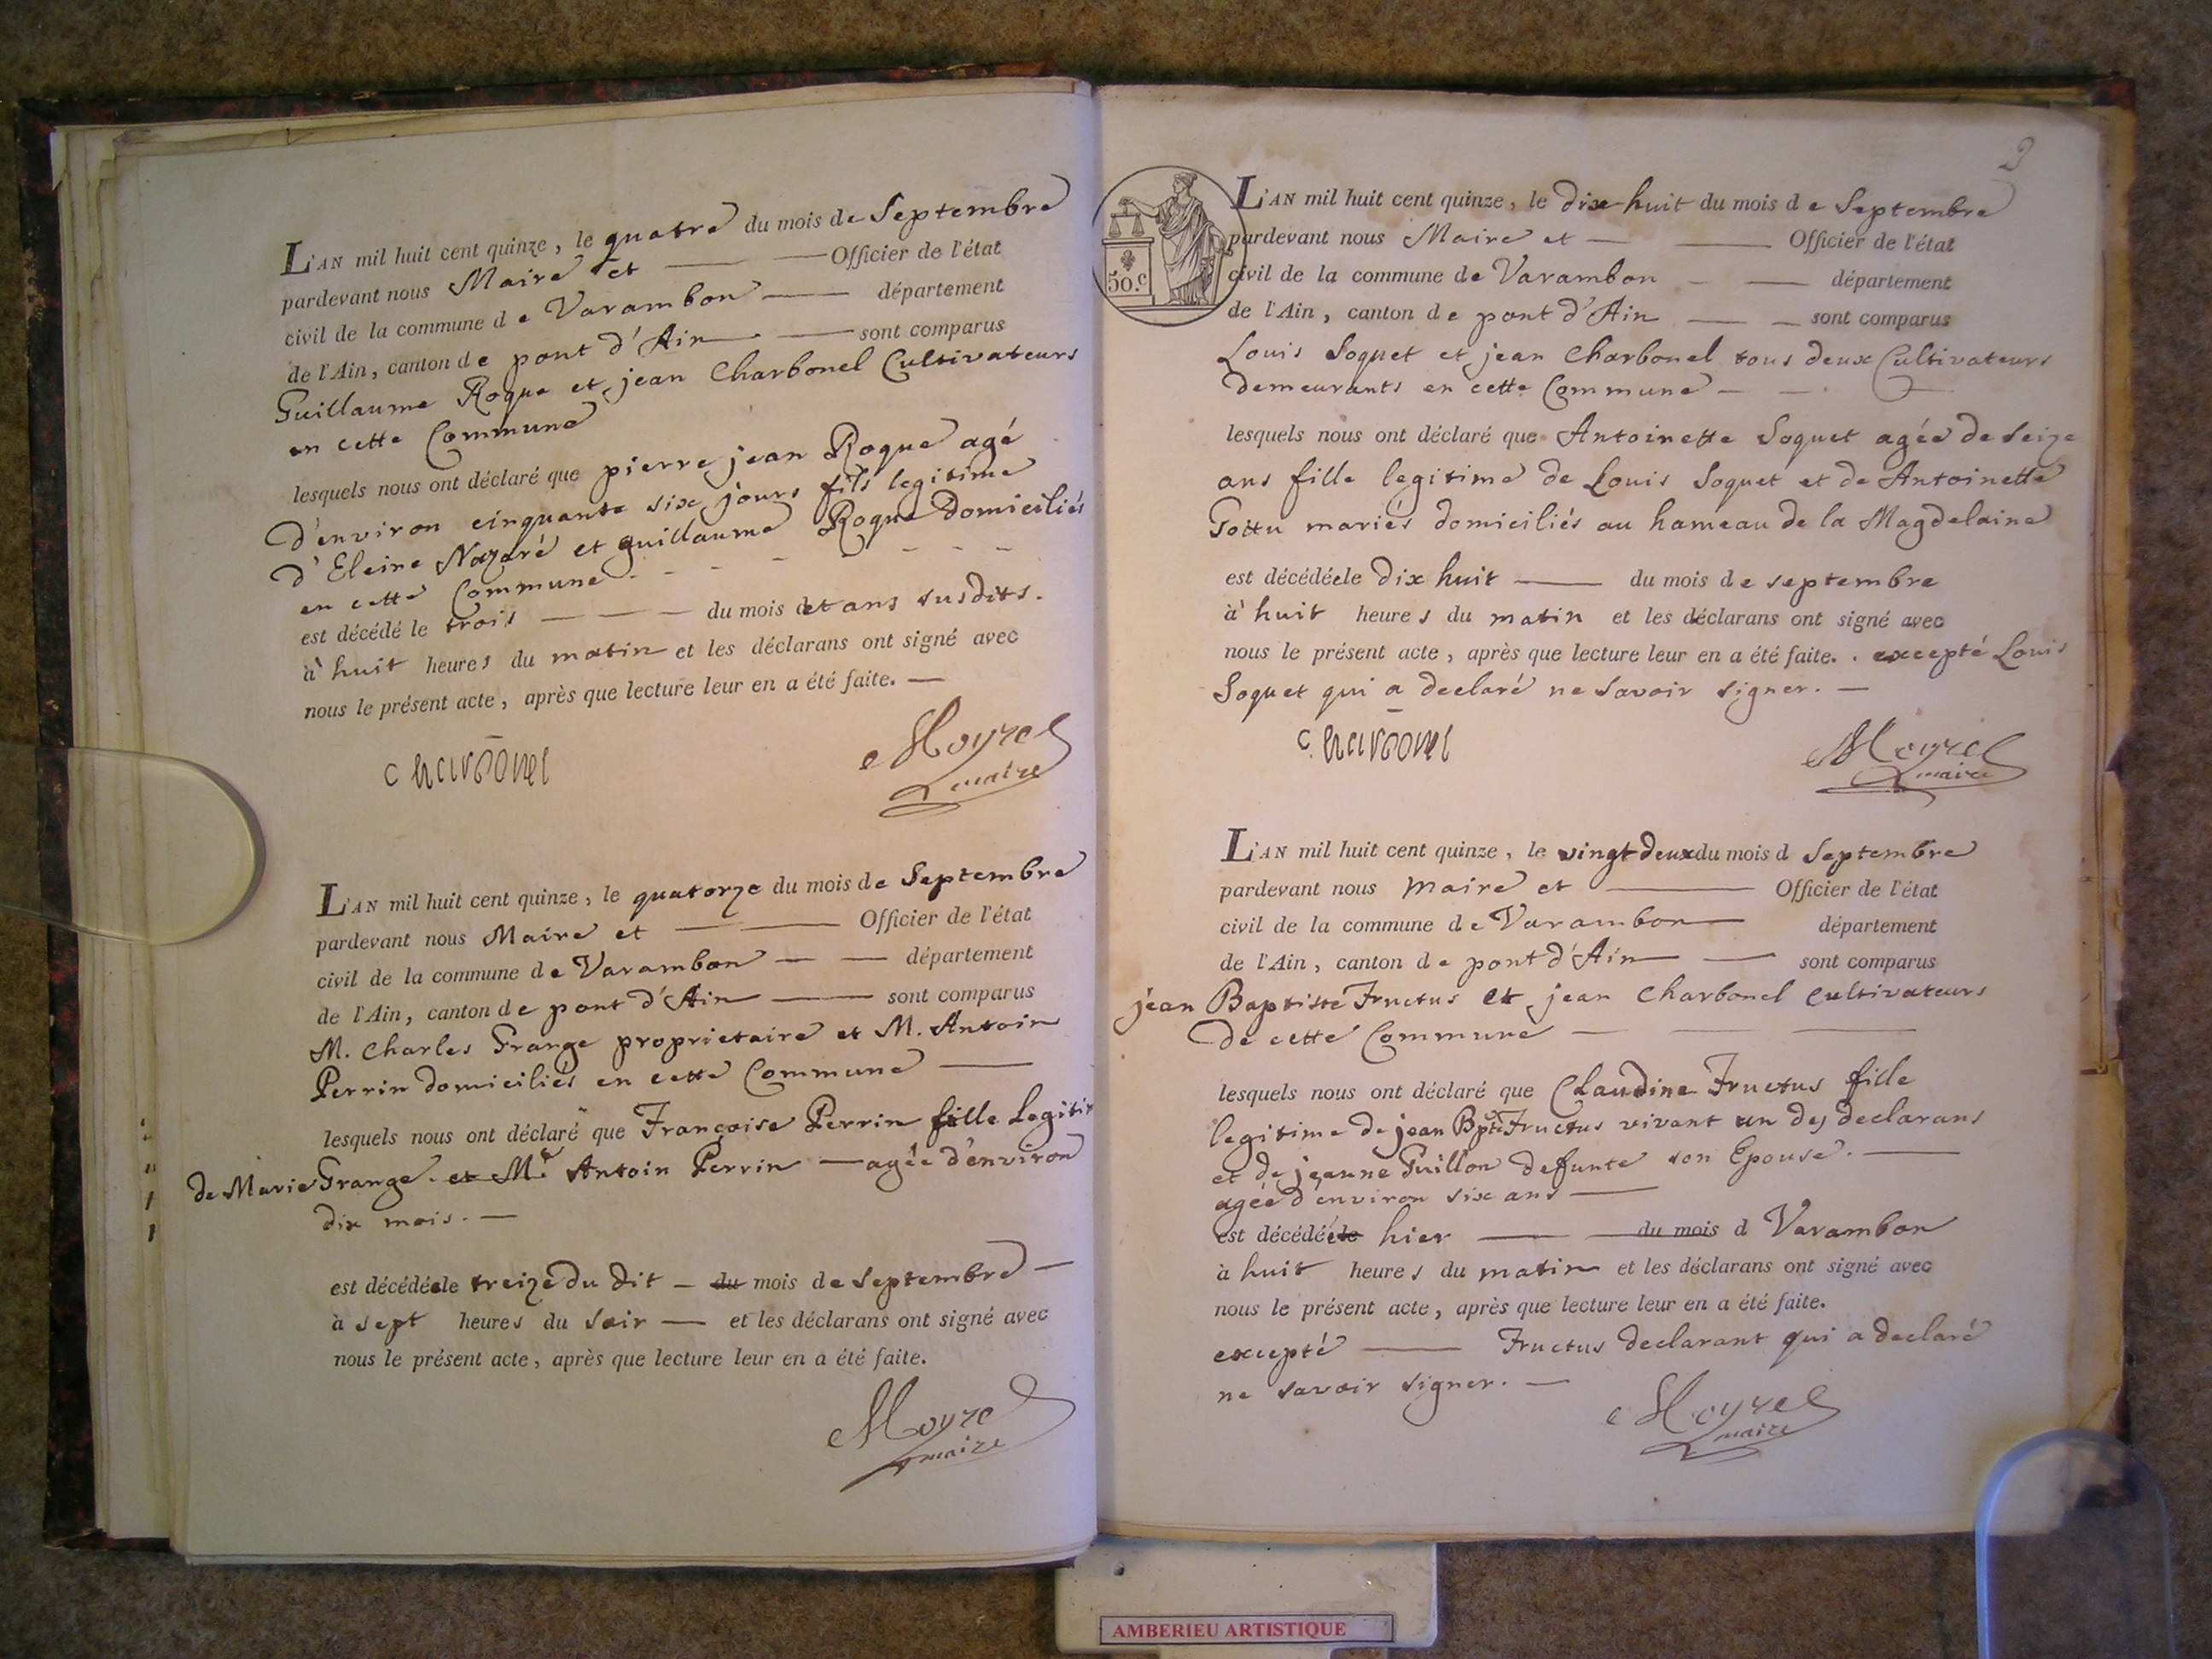 L'AN mil huit cent quinze, le quatre du mois de Septembre
pardevant nous Maire et Officier de l'état
civil de la commune de Varambon département
de l'Ain, canton de pont d'Ain sont comparus
Guillaume Roque et jean Charbonel Cultivateurs
en cette Commune
lesquels nous ont déclaré que pierre jean Roque agé
d'environ cinquante six jours fils legitime
d'Eleine Nazaré et guillaume Roque domiciliés
en cette Commune
est décédé le trois du mois et ans susdits.
à huit heures du matin et les déclarans ont signé avec
nous le présent acte, après que lecture leur en a été faite. —
charbonel
Moyret
maire
L'AN mil huit cent quinze, le quatorze du mois de Septembre
pardevant nous Maire et Officier de l'état
civil de la commune de Varambon département
de l'Ain, canton de pont d'Ain sont comparus
M. Charles Grange proprietaire et M. Antoin
Perrin domiciliés en cette Commune
lesquels nous ont déclaré que Françoise Perrin fille Legitim
de Marie Grange. et Mr. Antoin Perrin — agée d'environ
dix mois. —
est décédée le treize du dit — du mois de Septembre —
à sept heures du soir — et les déclarans ont signé avec
nous le présent acte, après que lecture leur en a été faite.
Moyret
maire
3
50.c
L'AN mil huit cent quinze, le dix huit du mois de Septembre
pardevant nous Maire et Officier de l'état
civil de la commune de Varambon département
de l'Ain, canton de pont d'Ain sont comparus
Louis Soquet et jean Charbonel tous deux Cultivateurs
demeurants en cette Commune
lesquels nous ont déclaré que Antoinette Soquet agée de Seize
ans fille legitime de Louis Soquet et de Antoinette
Gottu mariés domiciliés au hameau de la Magdelaine
est décédée le dix huit du mois de septembre
à huit heures du matin et les déclarans ont signé avec
nous le présent acte, après que lecture leur en a été faite. . excepté Louis
Soquet qui a declaré ne Savoir signer. —
charbonel
Moyret
maire
L'AN mil huit cent quinze, le vingt deux du mois d Septembre
pardevant nous maire et Officier de l'état
civil de la commune de Varambon département
de l'Ain, canton de pont d'Ain sont comparus
jean Baptiste Fructus et jean Charbonel cultivateurs
de cette Commune
lesquels nous ont déclaré que Claudine Fructus fille
legitime de jean Bpte Fructus vivant un des declarans
et de jeanne Guillon defunte son Epouse. —
agée d'environ six ans
est décédée le hier du mois d Varambon
à huit heures du matin et les déclarans ont signé avec
nous le présent acte, après que lecture leur en a été faite.
excepté — Fructus declarant qui a declaré
ne savoir signer. —
Moyret
maire
AMBERIEU ARTISTIQUE